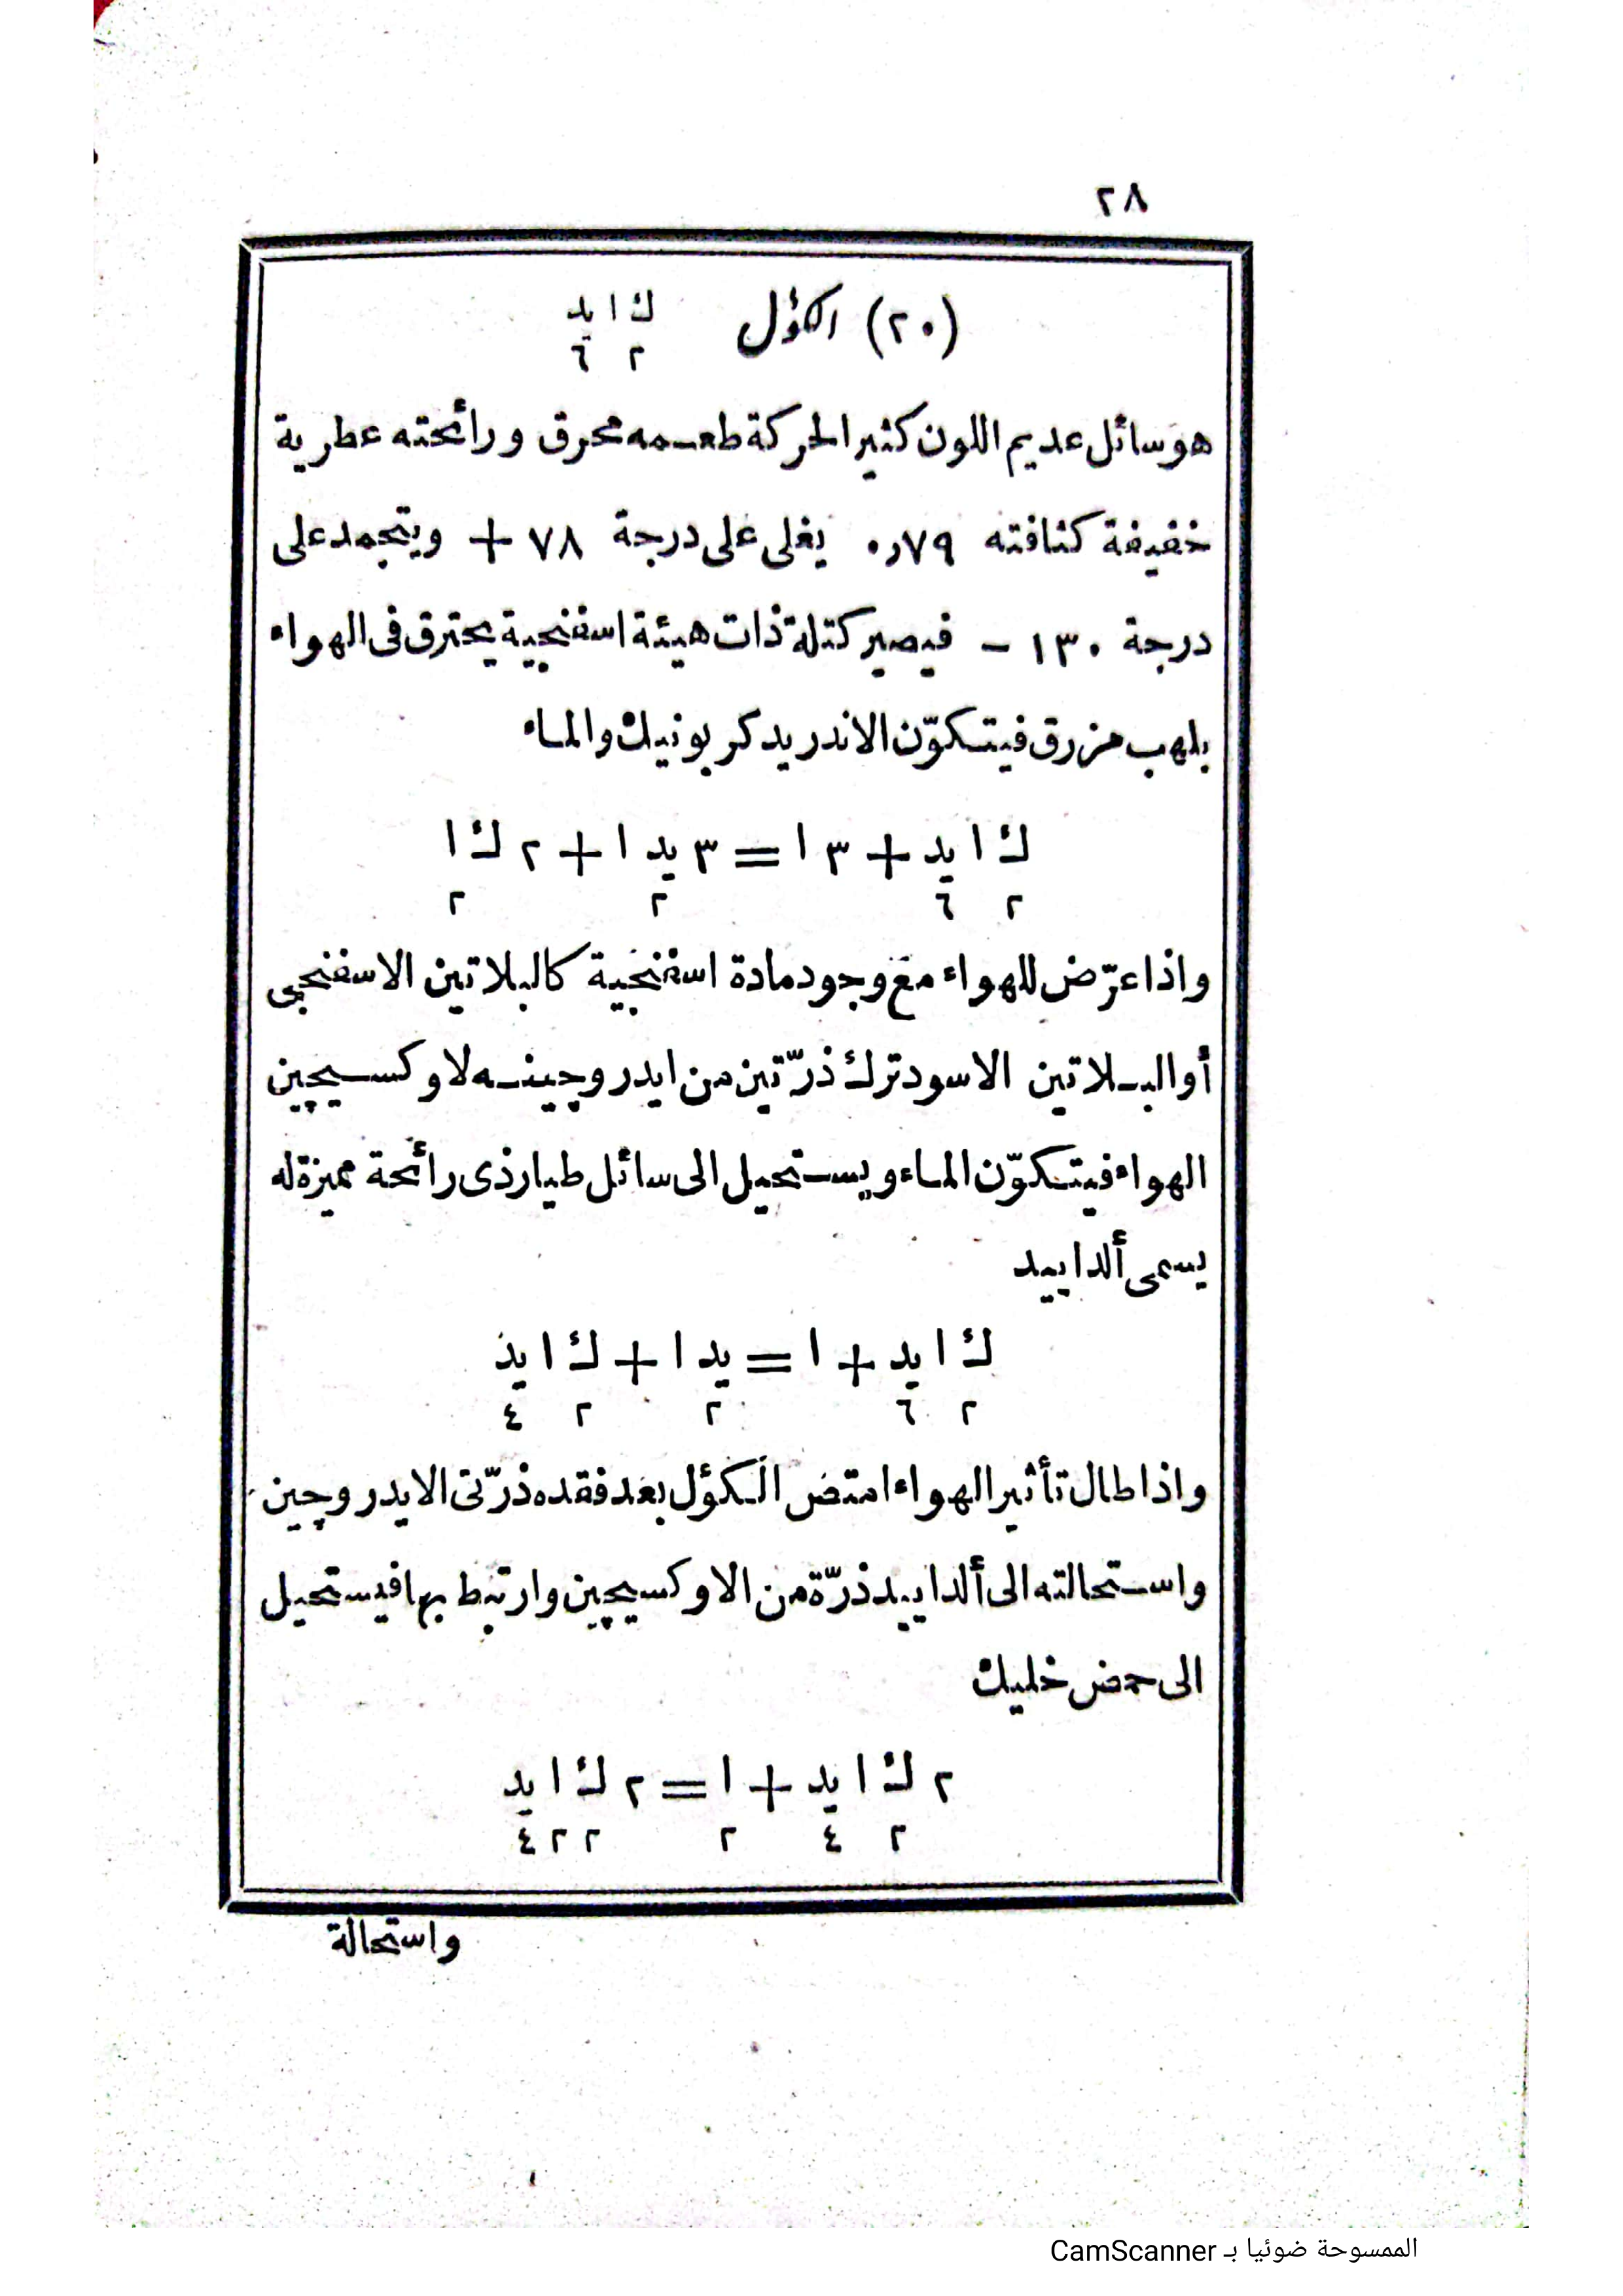 ٢٨
(٢٠) الكؤل ك ا يد
٢ ٦
هو سائل عديم اللون كثير الحركة طعمه محرق ورائحته عطرية
خفيفة كثافته ٠٫٧٩ يغلى على درجة ٧٨ + ويتجمد على
درجة ١٣٠ − فيصير كتلة ذات هيئة اسفنجية يحترق فى الهواء
بلهب مزرق فيتكوّن الاندريد كربونيك والماء
ك ا يد + ٣ ا = ٣ يد ا + ٢ ك ا
٢ ٦ ٢ ٢
واذا عرّض للهواء مع وجود مادة اسفنجية كالبلاتين الاسفنجى
أو البلاتين الاسود ترك ذرّتين من ايدروجينه لاوكسيچين
الهواء فيتكوّن الماء ويستحيل الى سائل طيار ذى رائحة مميزة له
يسمى ألداييد
ك ا يد + ا = يد ا + ك ا يد
٢ ٦ ٢ ٢ ٤
واذا طال تأثير الهواء امتص الكؤل بعد فقده ذرّتى الايدروچين
واستحالته الى ألداييد ذرّة من الاوكسيچين وارتبط بها فيستحيل
الى حمض خليك
٢ ك ا يد + ا = ٢ ك ا يد
٢ ٤ ٢ ٢ ٢ ٤
واستحالة
الممسوحة ضوئيا بـ CamScanner